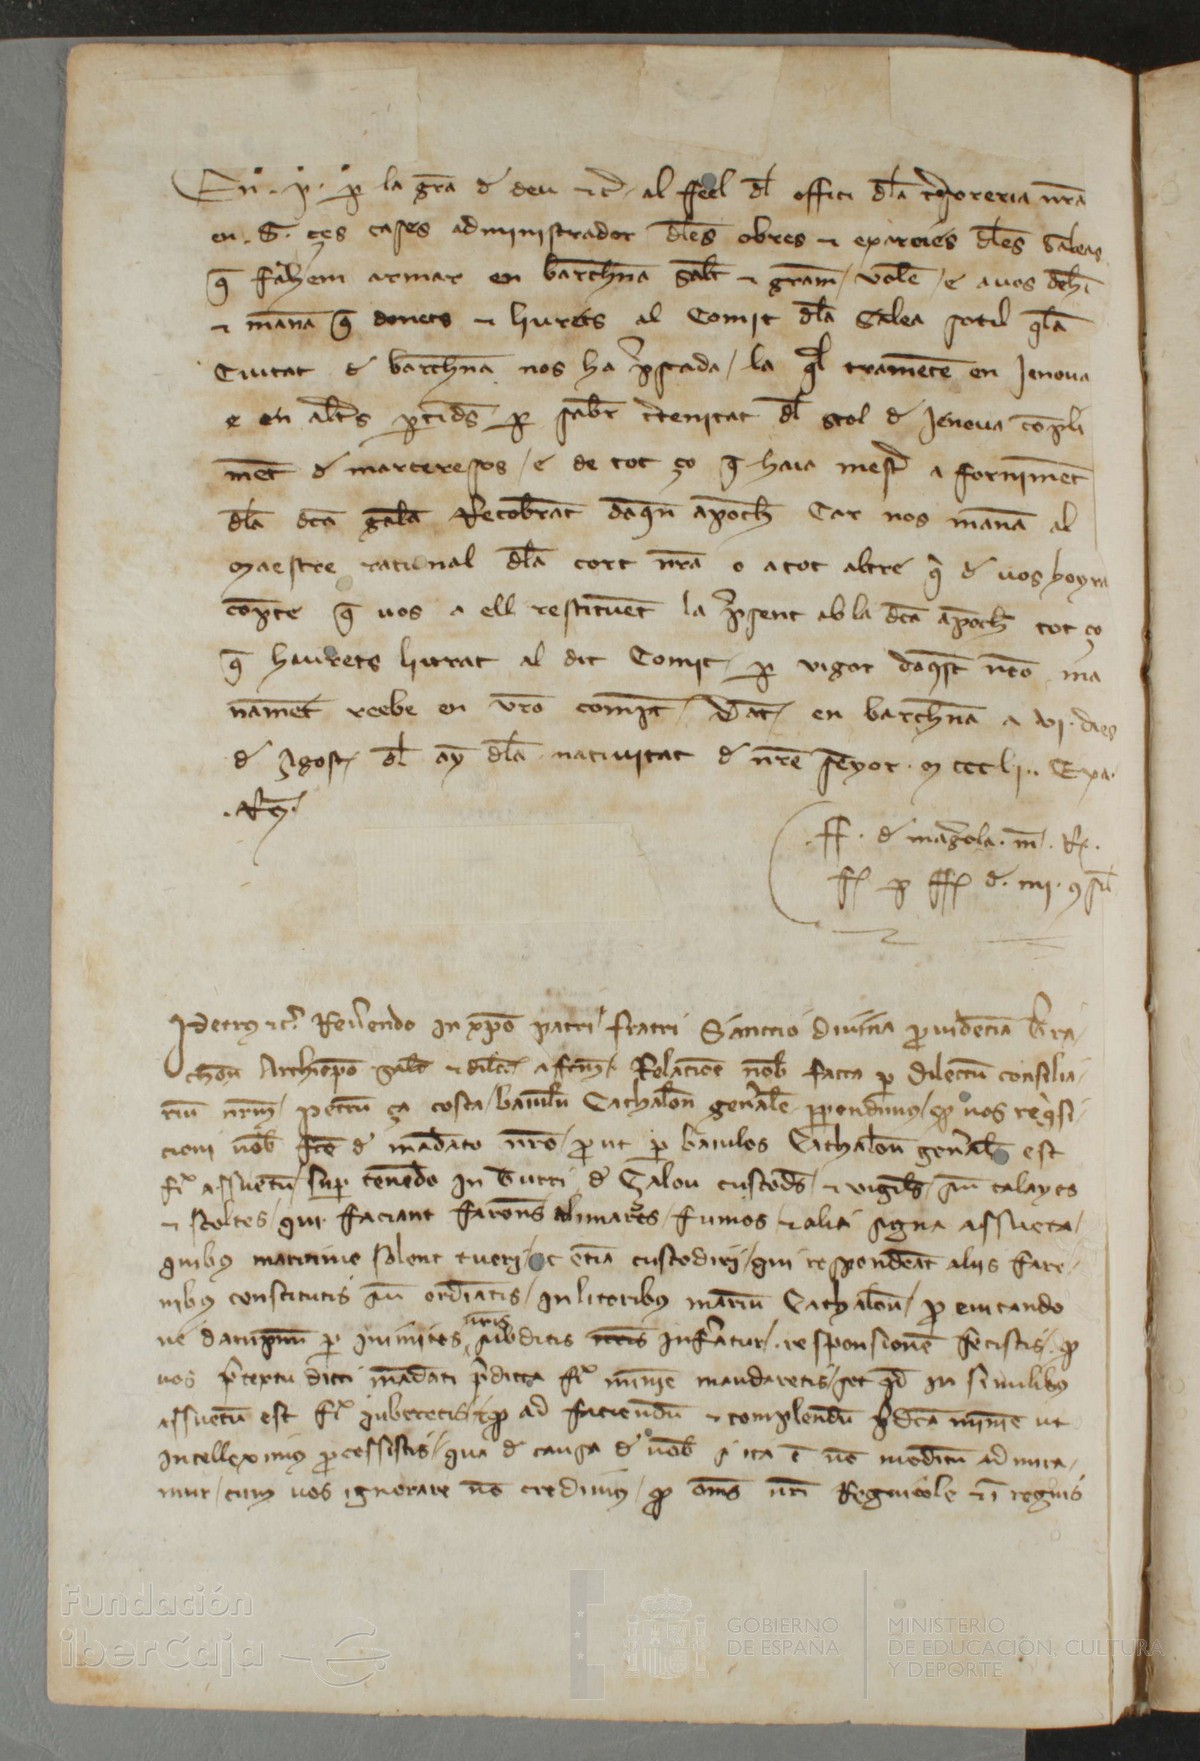 En .P. per la gra de deu etc. al feel del offici dla tresoreria nra
en .G. ces cases administrador dles obres e exarcies dles Galeas
q fahem armar en barchna salt e gram volem e a vos dehim
e mana q donets e liurets al Comit dla Galea sotil qla
Ciutat de barchna nos ha prestada / la ql trametem en Jenova
e en altrs partids per saber certenitat dl stol de Jenova compli
ment de marceresos / e de tot ço q haia mester a forniment
dla dca galea Recobrat daqn apocha Car nos manam al
Maestre racional dla cort nra o a tot altre q de vos hoyra
compte q vos a ell restituent la present ab la dca apocha tot ço
q haurets liurat al dit Comit per vigor daqst nro ma
nament reebe en vro compte Dat en barchna a VI. dies
de Agost dl any dla nativitat de nre senyor M CCC LI. Exa.
.Rg.
ff. de magrola. m. R.
fuit per
Petrus etc. Reverendo in xpo patri fratri Sanccio divina providencia Terra
chon Archiepo salt et dilec. Relacione nob facta per dilectum consilia
rium nrm Petrum ça costa baiulum Cathalon generale perpendimus / quod vos reqsi
cioni vob fce de mandato nro prout per baiulos Cathalon generals est
fi assuetum super tenendo in Turri de Salou custods et vigils sive talayes
et scoltes qui faciant farons alimares fumos et alia signa assueta
quibus maritime solent tueri ac etia custodiri / qui respondeat aliis faro
nibus constitutis sive ordiatis in litoribus marium Cathalon pro evitando
ne dampnum per inimicos nris subditis inferatur responsionem fecistis quod
vos pretextu dicti mandati predicta fi minime mandaretis set qd in similibus
assuetum est fi iuberetis et quod ad faciendum et complendum pdca minime ut
intelleximus processistis qua de causa de vob si ita e no modicum admira
mur / cum vos ignorare no credimus quod oms nri Regnicole et i regnis
Fundación
iberCaja
GOBIERNO
DE ESPAÑA
MINISTERIO
DE EDUCACIÓN, CULTURA
Y DEPORTE